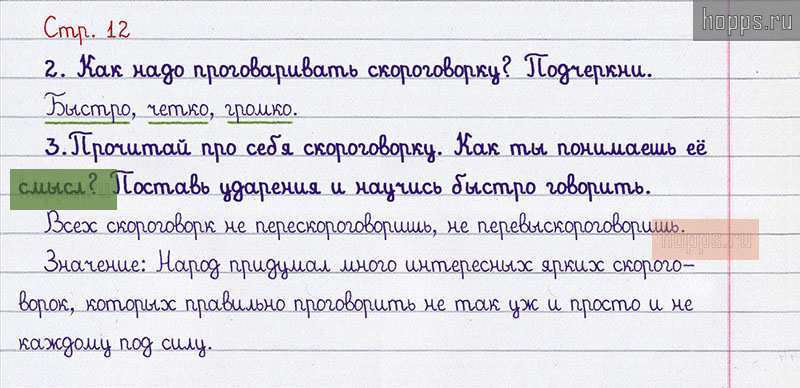 hopps.ru
Стр. 12
2. Как надо проговаривать скороговорку? Подчеркни.
Быстро, четко, громко.
3.Прочитай про себя скороговорку. Как ты понимаешь её
смысл? Поставь ударения и научись быстро говорить.
Всех скороговорк не перескороговоришь, не перевыскороговоришь.
hopps.ru
Значение: Народ придумал много интересных ярких скорого-
ворок, которых правильно проговорить не так уж и просто и не
каждому под силу.